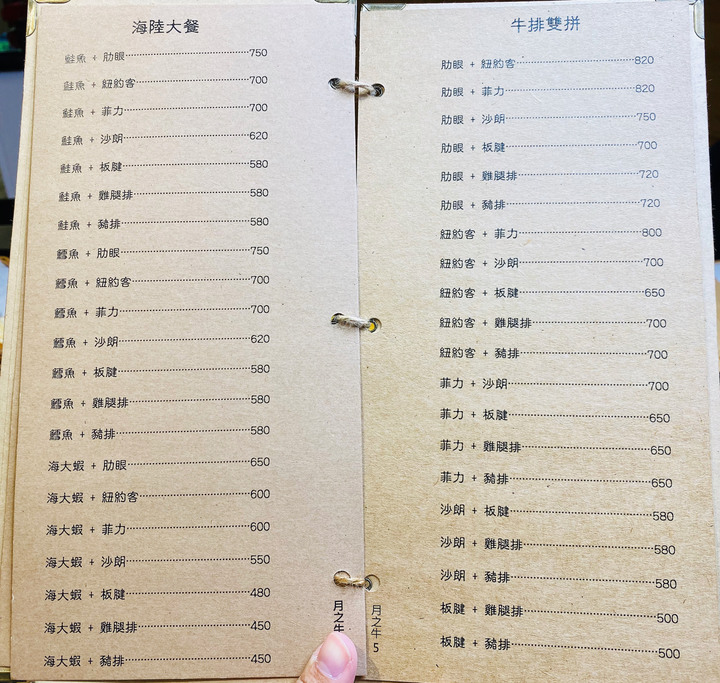 海陸大餐
鮭魚 + 肋眼 750
鮭魚 + 紐約客 700
鮭魚 + 菲力 700
鮭魚 + 沙朗 620
鮭魚 + 板腱 580
鮭魚 + 雞腿排 580
鮭魚 + 豬排 580
鱈魚 + 肋眼 750
鱈魚 + 紐約客 700
鱈魚 + 菲力 700
鱈魚 + 沙朗 620
鱈魚 + 板腱 580
鱈魚 + 雞腿排 580
鱈魚 + 豬排 580
海大蝦 + 肋眼 650
海大蝦 + 紐約客 600
海大蝦 + 菲力 600
海大蝦 + 沙朗 550
海大蝦 + 板腱 480
海大蝦 + 雞腿排 450
海大蝦 + 豬排 450
月之牛
牛排雙拼
肋眼 + 紐約客 820
肋眼 + 菲力 820
肋眼 + 沙朗 750
肋眼 + 板腱 700
肋眼 + 雞腿排 720
肋眼 + 豬排 720
紐約客 + 菲力 800
紐約客 + 沙朗 700
紐約客 + 板腱 650
紐約客 + 雞腿排 700
紐約客 + 豬排 700
菲力 + 沙朗 700
菲力 + 板腱 650
菲力 + 雞腿排 650
菲力 + 豬排 650
沙朗 + 板腱 580
沙朗 + 雞腿排 580
沙朗 + 豬排 580
板腱 + 雞腿排 500
板腱 + 豬排 500
月之牛 5